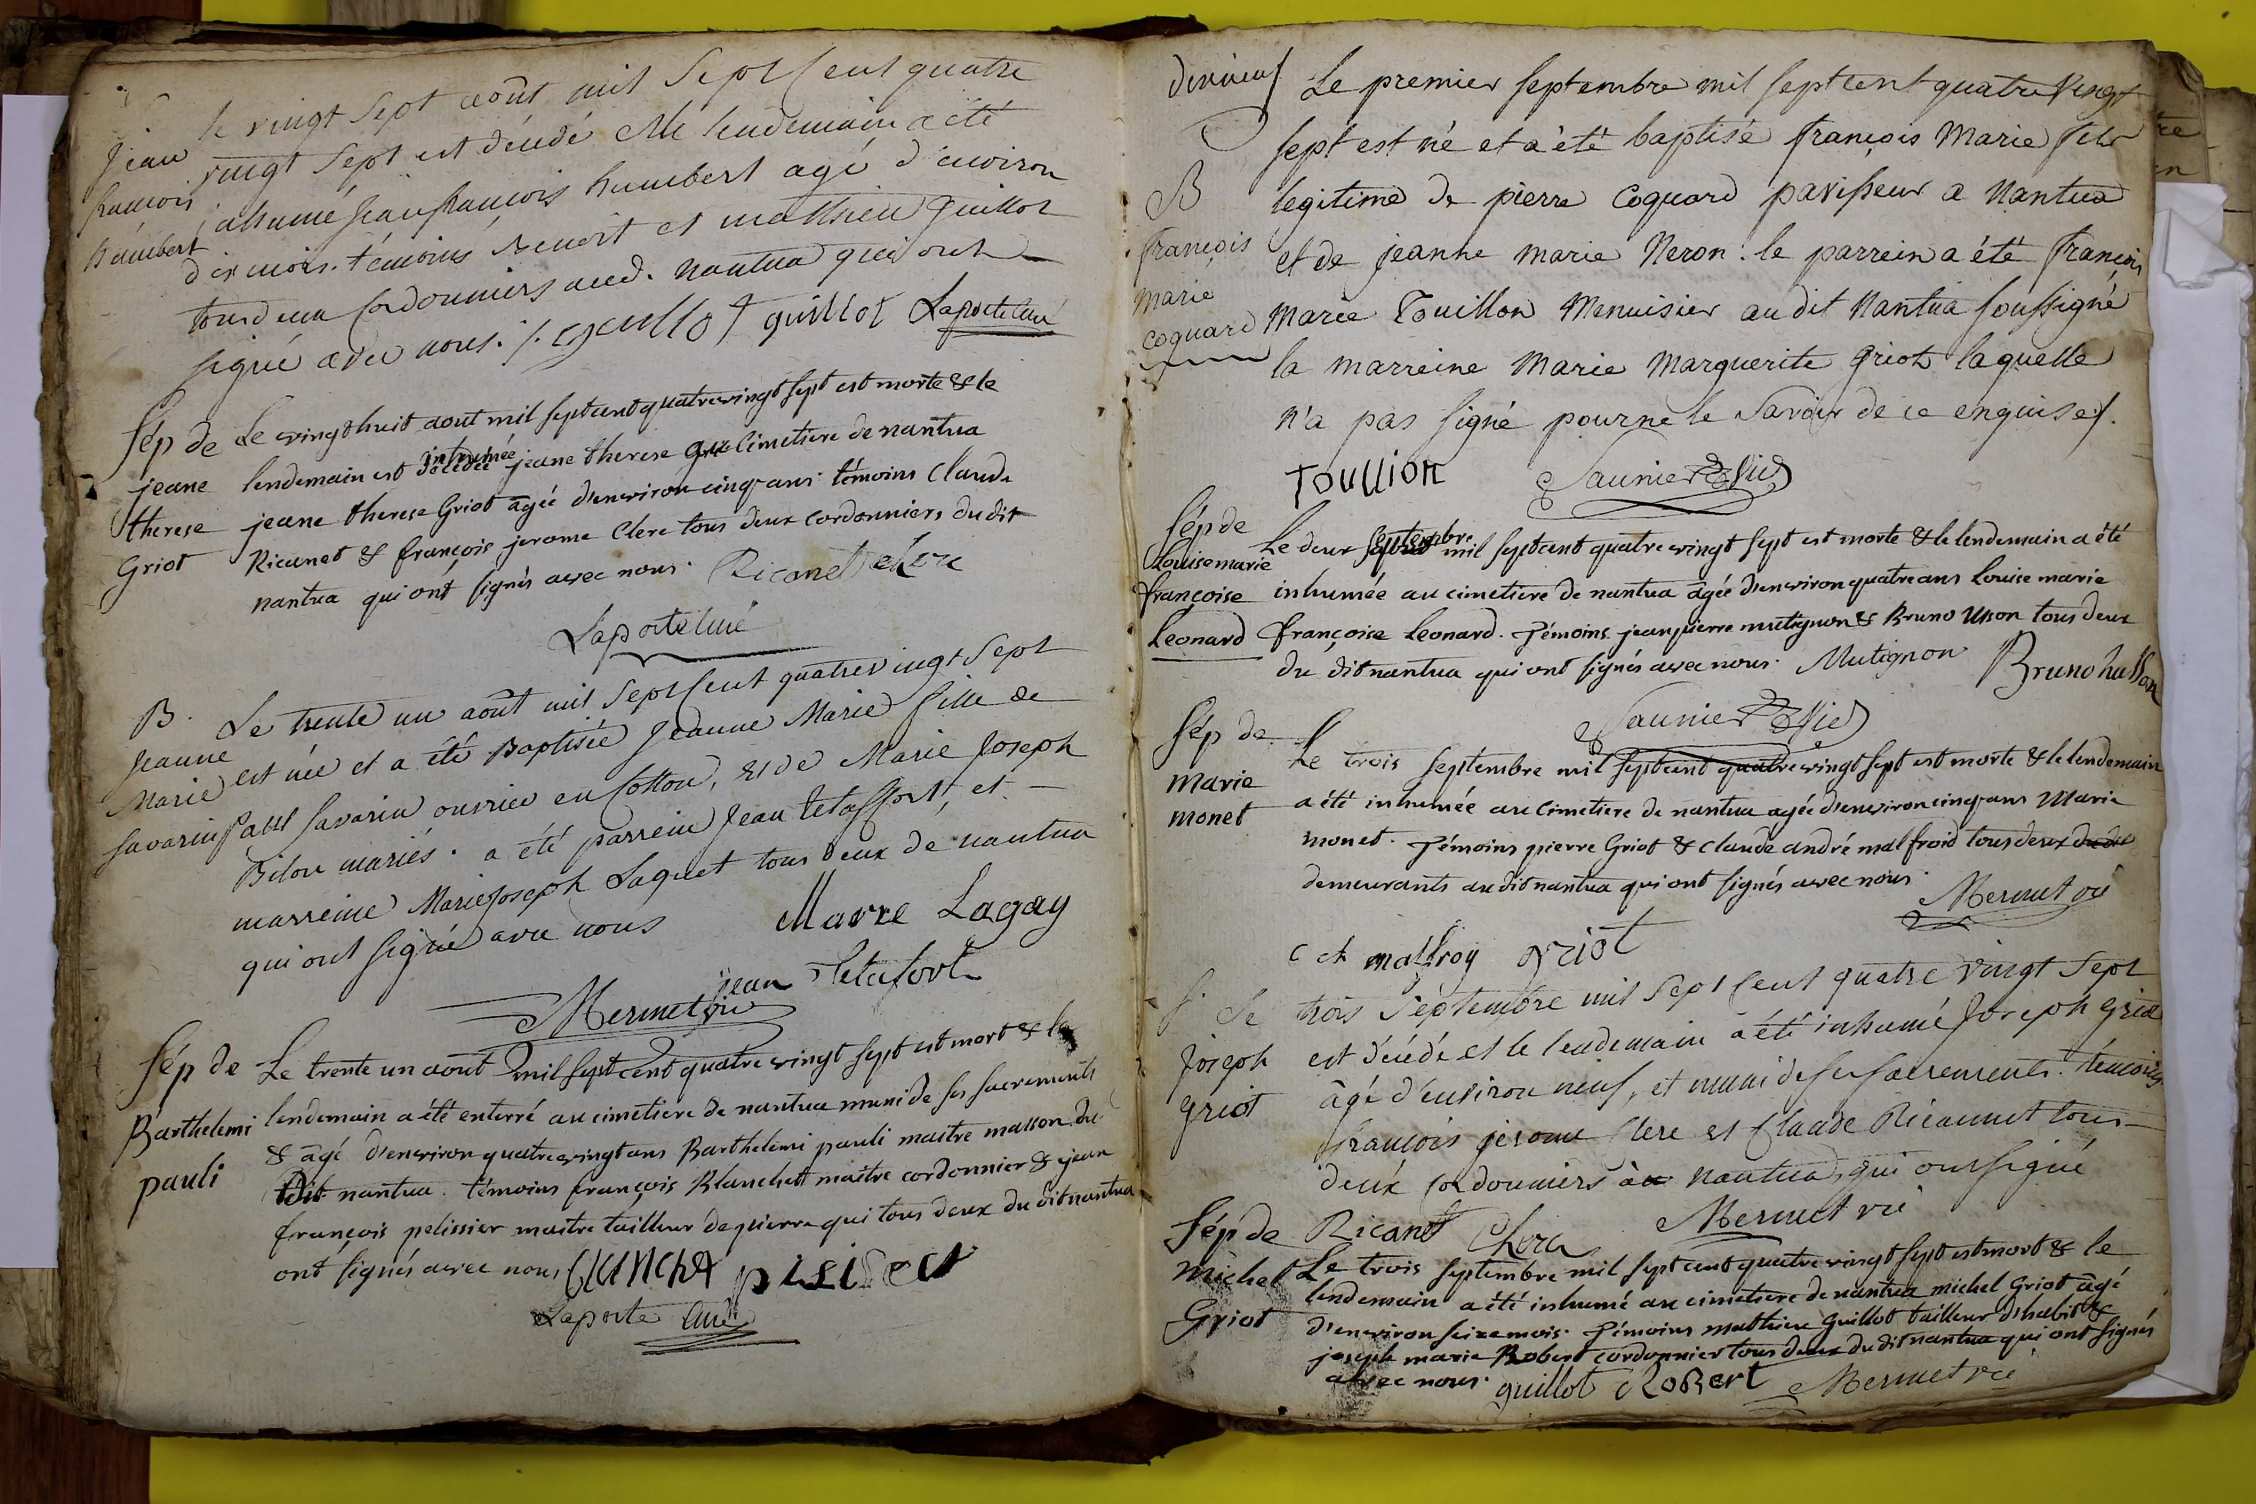 Jean
François
Humbert
le vingt Sept août mil Sept Cent quatre
vingt Sept est décédé et le lendemain a été
inhumé Jean françois humbert agé d'environ
dix mois. témoins Benoit et matthieu Guillot
tous deux Cordonniers aud. nantua qui ont
signé avec nous ./. guillot Laporte curé
Sép de
jeane
therese
Griot
Le vingt huit aout mil sept cent quatre vingt sept est morte & le
lendemain est décédée inhumée jeane therese au Cimetiere de nantua
jeane therese Griot âgée d'environ cinq ans. témoins Claude
Ricanet & françois jerome Clerc tous deux cordonniers du dit
nantua qui ont signés avec nous. Ricanet clerc
Laporte curé
B.
Jeanne
Marie
Savarin
Le trente un août mil Sept Cent quatre vingt Sept
est née et a été Baptisée Jeanne Marie fille de
Savarin ouvrier en Cotton, et de Marie Joseph
Bilon mariés. a été parrein Jean Tetaffort, et
marreine Marie Joseph Laguet tous deux de nantua
qui ont signé avec nous
Marie Lagay
jean Tetafort
Mermet vic
Sép de
Barthelemi
pauli
Le trente un aout mil sept cent quatre vingt sept est mort & le
lendemain a été enterré au cimetiere de nantua muni de ses sacrements
& âgé d'environ quatre vingt ans Barthelemi pauli maitre masson du
dit nantua. témoins françois Blanchet maitre cordonnier & jean
françois pelissier maitre tailleur de pierre qui tous deux du dit nantua
ont signés avec nous
Laporte curé
dixneuf
B
françois
marie
coquard
Le premier septembre mil sept cent quatre vingt
sept est né et a été baptisé françois Marie fils
legitime de pierre Coquard pavisseur a Nantua
et de jeanne marie Neron : le parrein a été françois
Marie Touillon Menuisier au dit Nantua soussigné
la marreine Marie Marguerite Griot laquelle
n'a pas signé pour ne le savoir de ce enquise ./.
Toullion Saunier Vic
Sép de
Louise marie
françoise
Leonard
Le deux septembre mil sept cent quatre vingt sept est morte & le lendemain a été
inhumée au cimetiere de nantua âgée d'environ quatre ans Louise marie
françoise Leonard. Témoins jean pierre mutignon & Bruno Usson tous deux
du dit nantua qui ont signés avec nous. Mutignon Bruno husson
Saunier Vic
Sép de
Marie
monet
Le trois septembre mil sept cent quatre vingt sept est morte & le lendemain
a été inhumée au Cimetiere de nantua agée d'environ cinq ans Marie
monet. Témoins pierre Griot & Claude andré malfroid tous deux du dit
demeurants au dit nantua qui ont signés avec nous.
Mermet vic
c a malfroy griot
S. de
Joseph
griot
Le trois Septembre mil Sept Cent quatre vingt Sept
est décédé et le lendemain a été inhumé Joseph Griot
âgé d'environ neuf, et muni de ses sacrements. témoins
françois jerome Clerc et Claude Ricannet tous
deux Cordonniers à nantua, qui ont signé
Ricanet Clerc Mermet vic
Sép de
Michel
Griot
Le trois septembre mil sept cent quatre vingt sept est mort & le
lendemain a été inhumé au cimetiere de nantua michel Griot âgé
d'environ seize mois. Témoins mathieu Guillot tailleur d'habit &
joseph marie Robert cordonnier tous deux du dit nantua qui ont signés
avec nous. guillot Robert Mermet vic